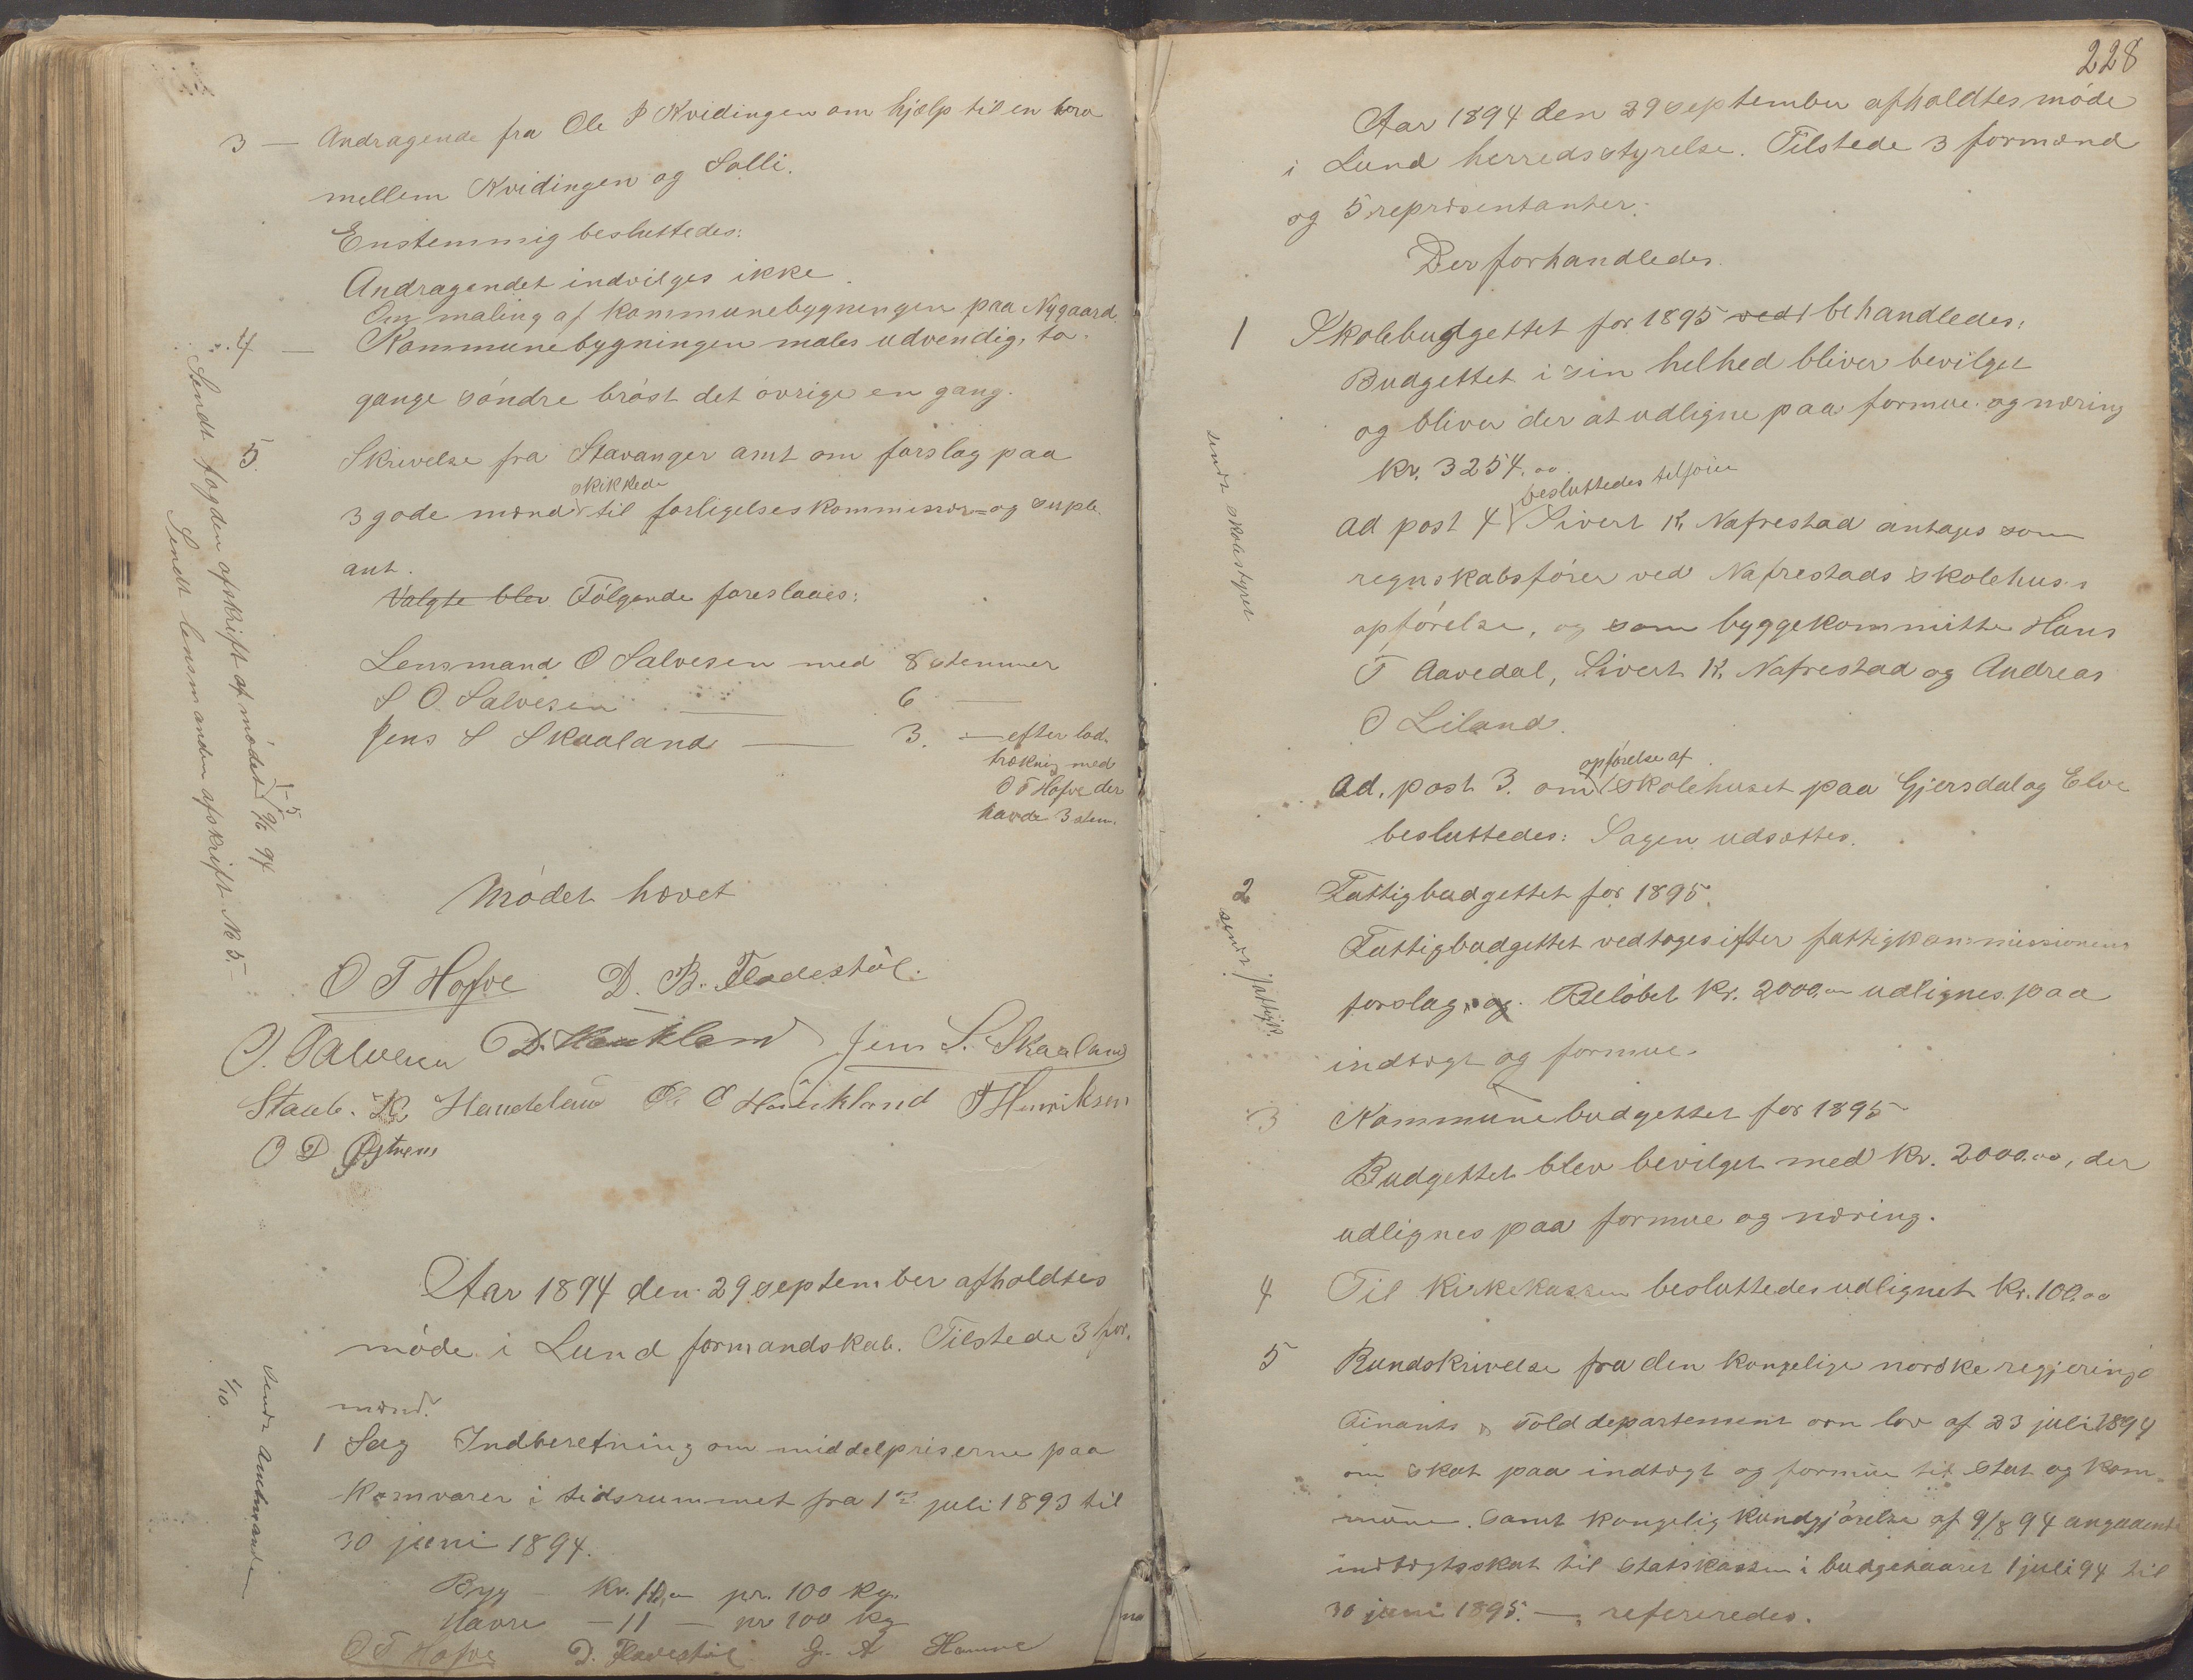 3 — Andragende fra Ole P Kvidingen om hjælp til en bro
mellem Kvidingen og Solli.
Enstemmig besluttedes:
Andragendet indvilges ikke.
Om maling af kommunebygningen paa Nygaard.
4 — Kommunebygningen males udvendig, to
gange söndre bröst det övrige en gang.
5. Skrivelse fra Stavanger amt om forslag paa
skikkede
3 gode mænd til forligelseskommissær- og suple-
ant.
Valgte blev Fölgende foreslaaes:
Lensmand O Salvesen med 8 stemmer
S O. Salvesen — 6 —
Jens S Skaaland — 3. — efter lod-
trækning med
O T Hofve der
havde 3 stem.
Sendt fogden afskrift af mødet 1-5 9/6 94
Sendt lensmanden afskrift No 5.
Mödet hævet
O T Hofve D. B. Fladestöl.
O. Salvesen D. Haukland Jens S. Skaaland
Staale. K Haukland O. O Haukland T Henriksen
O D Østrem
Aar 1894 den 29 september afholdtes
möde i Lund formandskab. Tilstede 3 for-
mænd.
1 Sag Indberetning om middelpriserne paa
kornvarer i tidsrummet fra 1ste juli 1893 til
30 juni 1894.
Byg — kr. pr. 100 kg.
Havre — 11 — pr 100 kg
O T Hofve D. Fladestöl G. A Hamre
Sendt Amtmanden
1/10
228
Aar 1894 den 29 september afholdtes möde
i Lund herredsstyrelse. Tilstede 3 formænd
og 5 repræsentanter.
Der forhandledes.
1 Skolebudgettet for 1895 ved behandledes:
Budgettet i sin helhed bliver bevilget
og bliver der at udligne paa formue og næring
kr. 3254.00
besluttedes tilföiet
ad post 4 Sivert K. Nafrestad antages som
regnskabsförer ved Nafrestads skolehus.s
opförelse, og som byggekommitte Hans
T Aavedal, Sivert K. Nafrestad og Andreas
O Liland.
opförelse af
Ad. post 3. om skolehuset paa Gjersdal og Elve
besluttedes: Sagen udsættes.
sendt skolestyret
2 Fattigbudgettet for 1895.
Fattigbudgettet vedtoges ifter fattigkommissionens
forslag, og. Belöbet kr. 2000,00 udlignes paa
indtægt og formue.
sendt fattigk.
3 Kommunebudgettet for 1895
Budgettet blev bevilget med kr. 2000.00, der
udlignes paa formue og næring.
4 Til kirkekassen besluttedes udlignet kr. 100.00
5 Rundskrivelse fra den kongelige norske regjerings
Finants & Tolddepartement om lov af 23 juli 1894
om skat paa indtægt og formue til stat og kom-
mune. samt kongelig kundgjörelse af 9/8 94 angaaende
indtægtsskat til statskassen i budgetaaret 1 juli 94 til
30 juni 1895. —, refereredes.